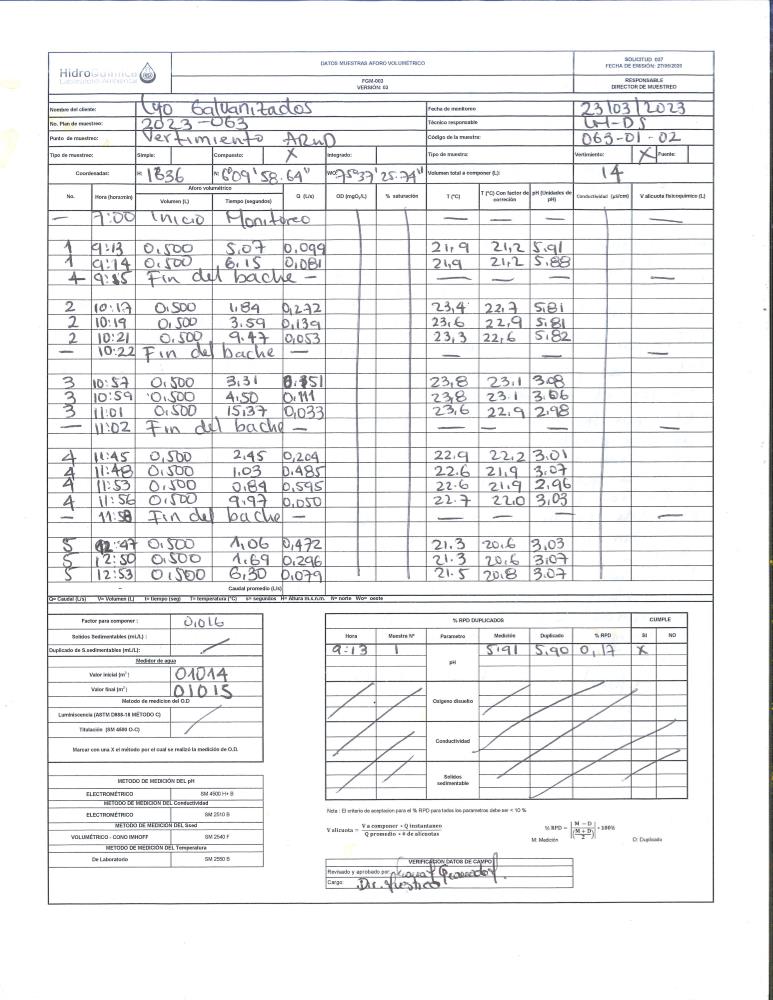 HidroQuímica
Laboratorio Ambiental
DATOS MUESTRAS AFORO VOLUMÉTRICO
SOLICITUD 037
FECHA DE EMISIÓN: 27/05/2020
FGM-063
VERSIÓN: 03
RESPONSABLE
DIRECTOR DE MUESTREO
Nombre del cliente: Lyo Galvanizados Fecha de monitoreo 23/03/2023
No. Plan de muestreo: 2023-063 Técnico responsable LH-DS
Punto de muestreo: Vertimiento ARnD Código de la muestra: 063-01-02
Tipo de muestreo: Simple: Compuesto: X Integrado: Tipo de muestra: Vertimiento: X Fuente:
Coordenadas: H: 1836 N: 6°09'58.64" WO: 75°37'25.74" Volumen total a componer (L): 14
No. Hora (hora:min) Aforo volumétrico Volumen (L) Tiempo (segundos) Q (L/s) OD (mgO₂/L) % saturación T (°C) T (°C) Con factor de corrección pH (Unidades de pH) Conductividad (µs/cm) V alicuota fisicoquímico (L)
— 7:00 Inicio Monitoreo — — — —
1 9:13 0,500 5,07 0,099 21,9 21,2 5.91
1 9:14 0,500 6,15 0,081 21,9 21,2 5,88
— 9:15 Fin del bache — — — — —
2 10:17 0,500 1,84 0,272 23,4 22,7 5,81
2 10:19 0,500 3.59 0,139 23,6 22,9 5,81
2 10:21 0,500 9.47 0,053 23,3 22,6 5,82
— 10:22 Fin del bache — — — — —
3 10:57 0,500 3,31 0.151 23,8 23.1 3.08
3 10:59 0,500 4,50 0,111 23,8 23.1 3.06
3 11:01 0,500 15,37 0,033 23,6 22,9 2,98
— 11:02 Fin del bache — — — — —
4 11:45 0,500 2,45 0,204 22.9 22,2 3,01
4 11:48 0,500 1,03 0,485 22.6 21,9 3,07
4 11:53 0,500 0,84 0,595 22.6 21,9 2,96
4 11:56 0,500 9,97 0,050 22.7 22,0 3,03
— 11:58 Fin del bache — — — — —
5 12:47 0,500 1,06 0,472 21.3 20,6 3,03
5 12:50 0,500 1,69 0,296 21.3 20,6 3,07
5 12:53 0,500 6,30 0,079 21.5 20,8 3,07
Caudal promedio (L/s)
Q= Caudal (L/s) V= Volumen (L) t= tiempo (seg) T= temperatura (°C) s= segundos H= Altura m.s.n.m. N= norte Wo= oeste
Factor para componer : 0,016
Solidos Sedimentables (mL/L) :
Duplicado de S.sedimentables (mL/L):
Medidor de agua
Valor inicial (m³) : 01014
Valor final (m³) : 01015
Metodo de medicion del O.D
Luminiscencia (ASTM D888-18 MÉTODO C)
Titulación (SM 4500 O-C)
Marcar con una X el método por el cual se realizó la medición de O.D.
% RPD DUPLICADOS CUMPLE
Hora Muestra Nº Parametro Medición Duplicado % RPD SI NO
9:13 1 pH 5.91 5,90 0,17 X
Oxigeno disuelto
Conductividad
Solidos sedimentable
METODO DE MEDICIÓN DEL pH
ELECTROMÉTRICO SM 4500 H+ B
METODO DE MEDICION DEL Conductividad
ELECTROMÉTRICO SM 2510 B
METODO DE MEDICION DEL Ssed
VOLUMÉTRICO - CONO IMHOFF SM 2540 F
METODO DE MEDICION DEL Temperatura
De Laboratorio SM 2550 B
Nota : El criterio de aceptacion para el % RPD para todos los parametros debe ser < 10 %
V alicuota = V a componer * Q instantaneo / Q promedio * # de alicuotas
% RPD = |M − D / (M + D / 2)| * 100%
M: Medición D: Duplicado
VERIFICACION DATOS DE CAMPO
Revisado y aprobado por:
Cargo: